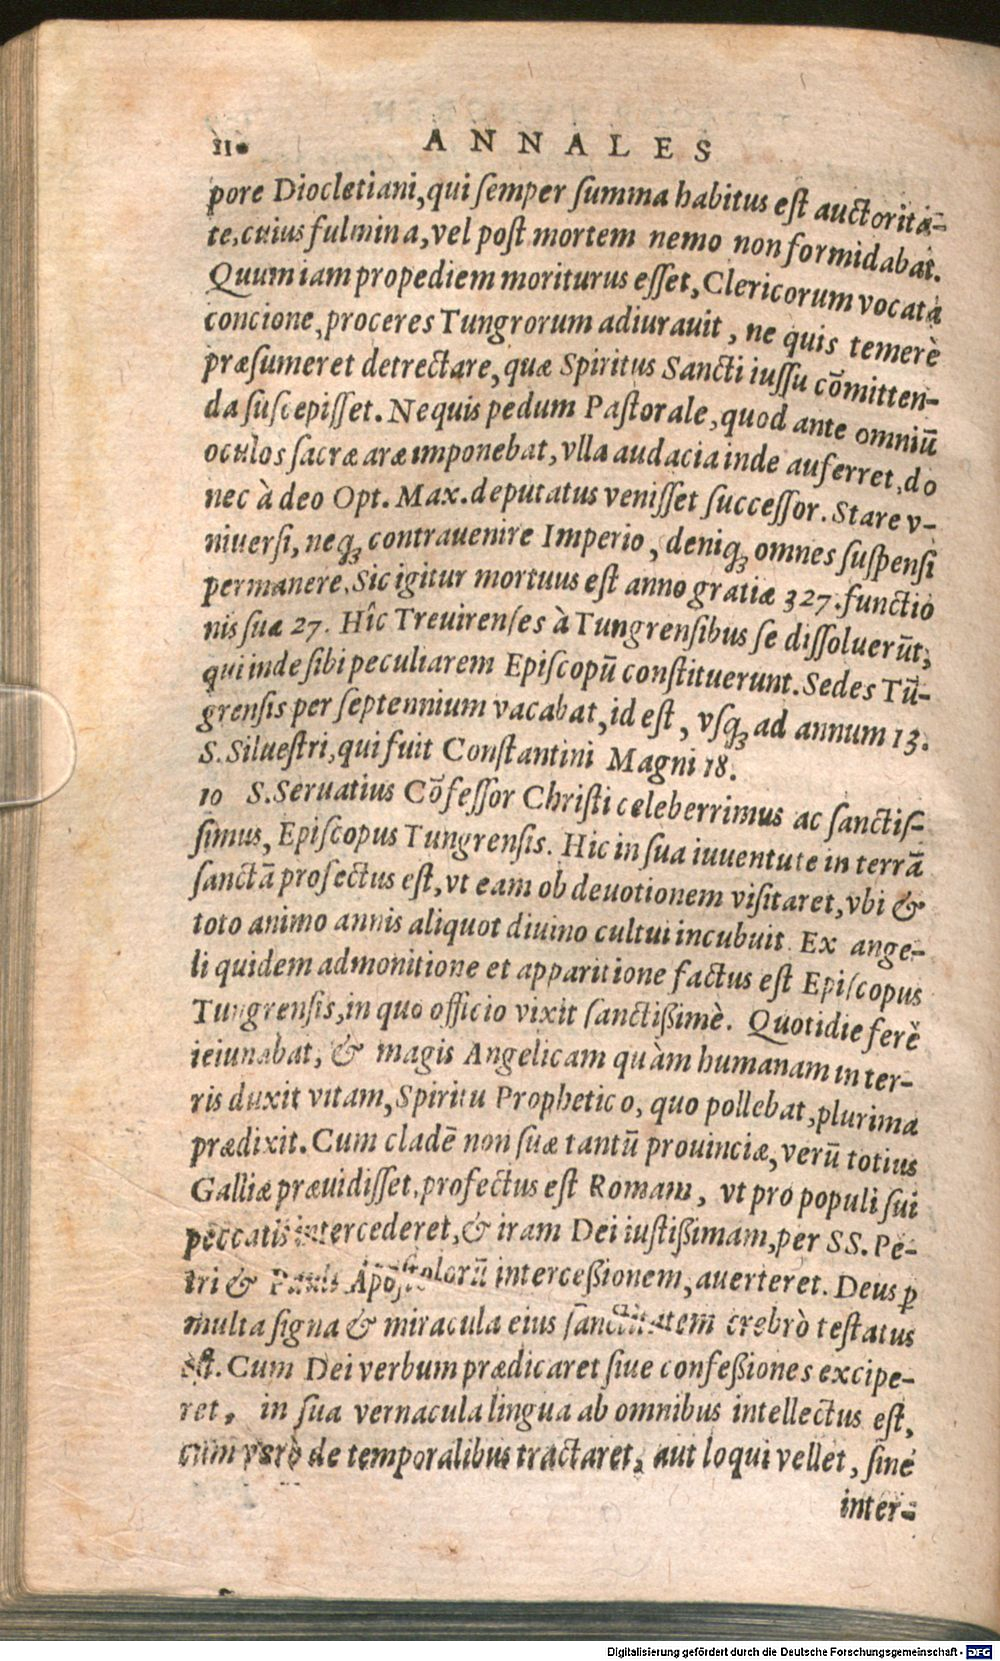 110 ANNALES
pore Diocletiani, qui ſemper ſumma habitus eſt auctoritá-
te, cuius fulmina, vel poſt mortem nemo non formidabat.
Quum iam propediem moriturus eſſet, Clericorum vocata
concione, proceres Tungrorum adiurauit, ne quis temerè
præſumeret detrectare, quæ Spiritus Sancti iuſſu cōmitten-
da ſuſcepiſſet. Ne quis pedum Paſtorale, quod ante omniū
oculos ſacræ aræ imponebat, vlla audacia inde auferret, do
nec à deo Opt. Max. deputatus veniſſet ſucceſſor. Stare v-
niuerſi, neqꝫ contrauenire Imperio, deniqꝫ omnes ſuſpenſi
permanere. Sic igitur mortuus eſt anno gratiæ 327. functio
nis ſuæ 27. Hîc Treuirenſes à Tungrenſibus ſe diſſoluerūt,
qui inde ſibi peculiarem Epiſcopū conſtituerunt. Sedes Tū-
grenſis per ſeptennium vacabat, id eſt, vſqꝫ ad annum 13.
S. Silueſtri, qui fuit Conſtantini Magni 18.
10 S. Seruatius Cōfeſſor Chriſti celeberrimus ac ſanctiſ-
ſimus, Epiſcopus Tungrenſis. Hic in ſua iuuentute in terrā
ſanctā profectus eſt, vt eam ob deuotionem viſitaret, vbi &
toto animo annis aliquot diuino cultui incubuit. Ex ange-
li quidem admonitione et apparitione factus eſt Epiſcopus
Tungrenſis, in quo officio vixit ſanctißimè. Quotidie ferè
ieiunabat, & magis Angelicam quàm humanam in ter-
ris duxit vitam, Spiritu Prophetico, quo pollebat, plurima
prædixit. Cum cladē non ſuæ tantū prouinciæ, verū totius
Galliæ præuidiſſet, profectus eſt Romam, vt pro populi ſui
peccatis intercederet, & iram Dei iuſtißimam, per SS. Pe-
tri & Pauli Apoſtolorū interceßionem, auerteret. Deus ꝑ
multa ſigna & miracula eius ſanctitatem crebrò teſtatus
eſt. Cum Dei verbum prædicaret ſiue confeßiones excipe-
ret, in ſua vernacula lingua ab omnibus intellectus eſt,
cum verò de temporalibus tractaret, aut loqui vellet, ſine
inter-
Digitalisierung gefördert durch die Deutsche Forschungsgemeinschaft - DFG